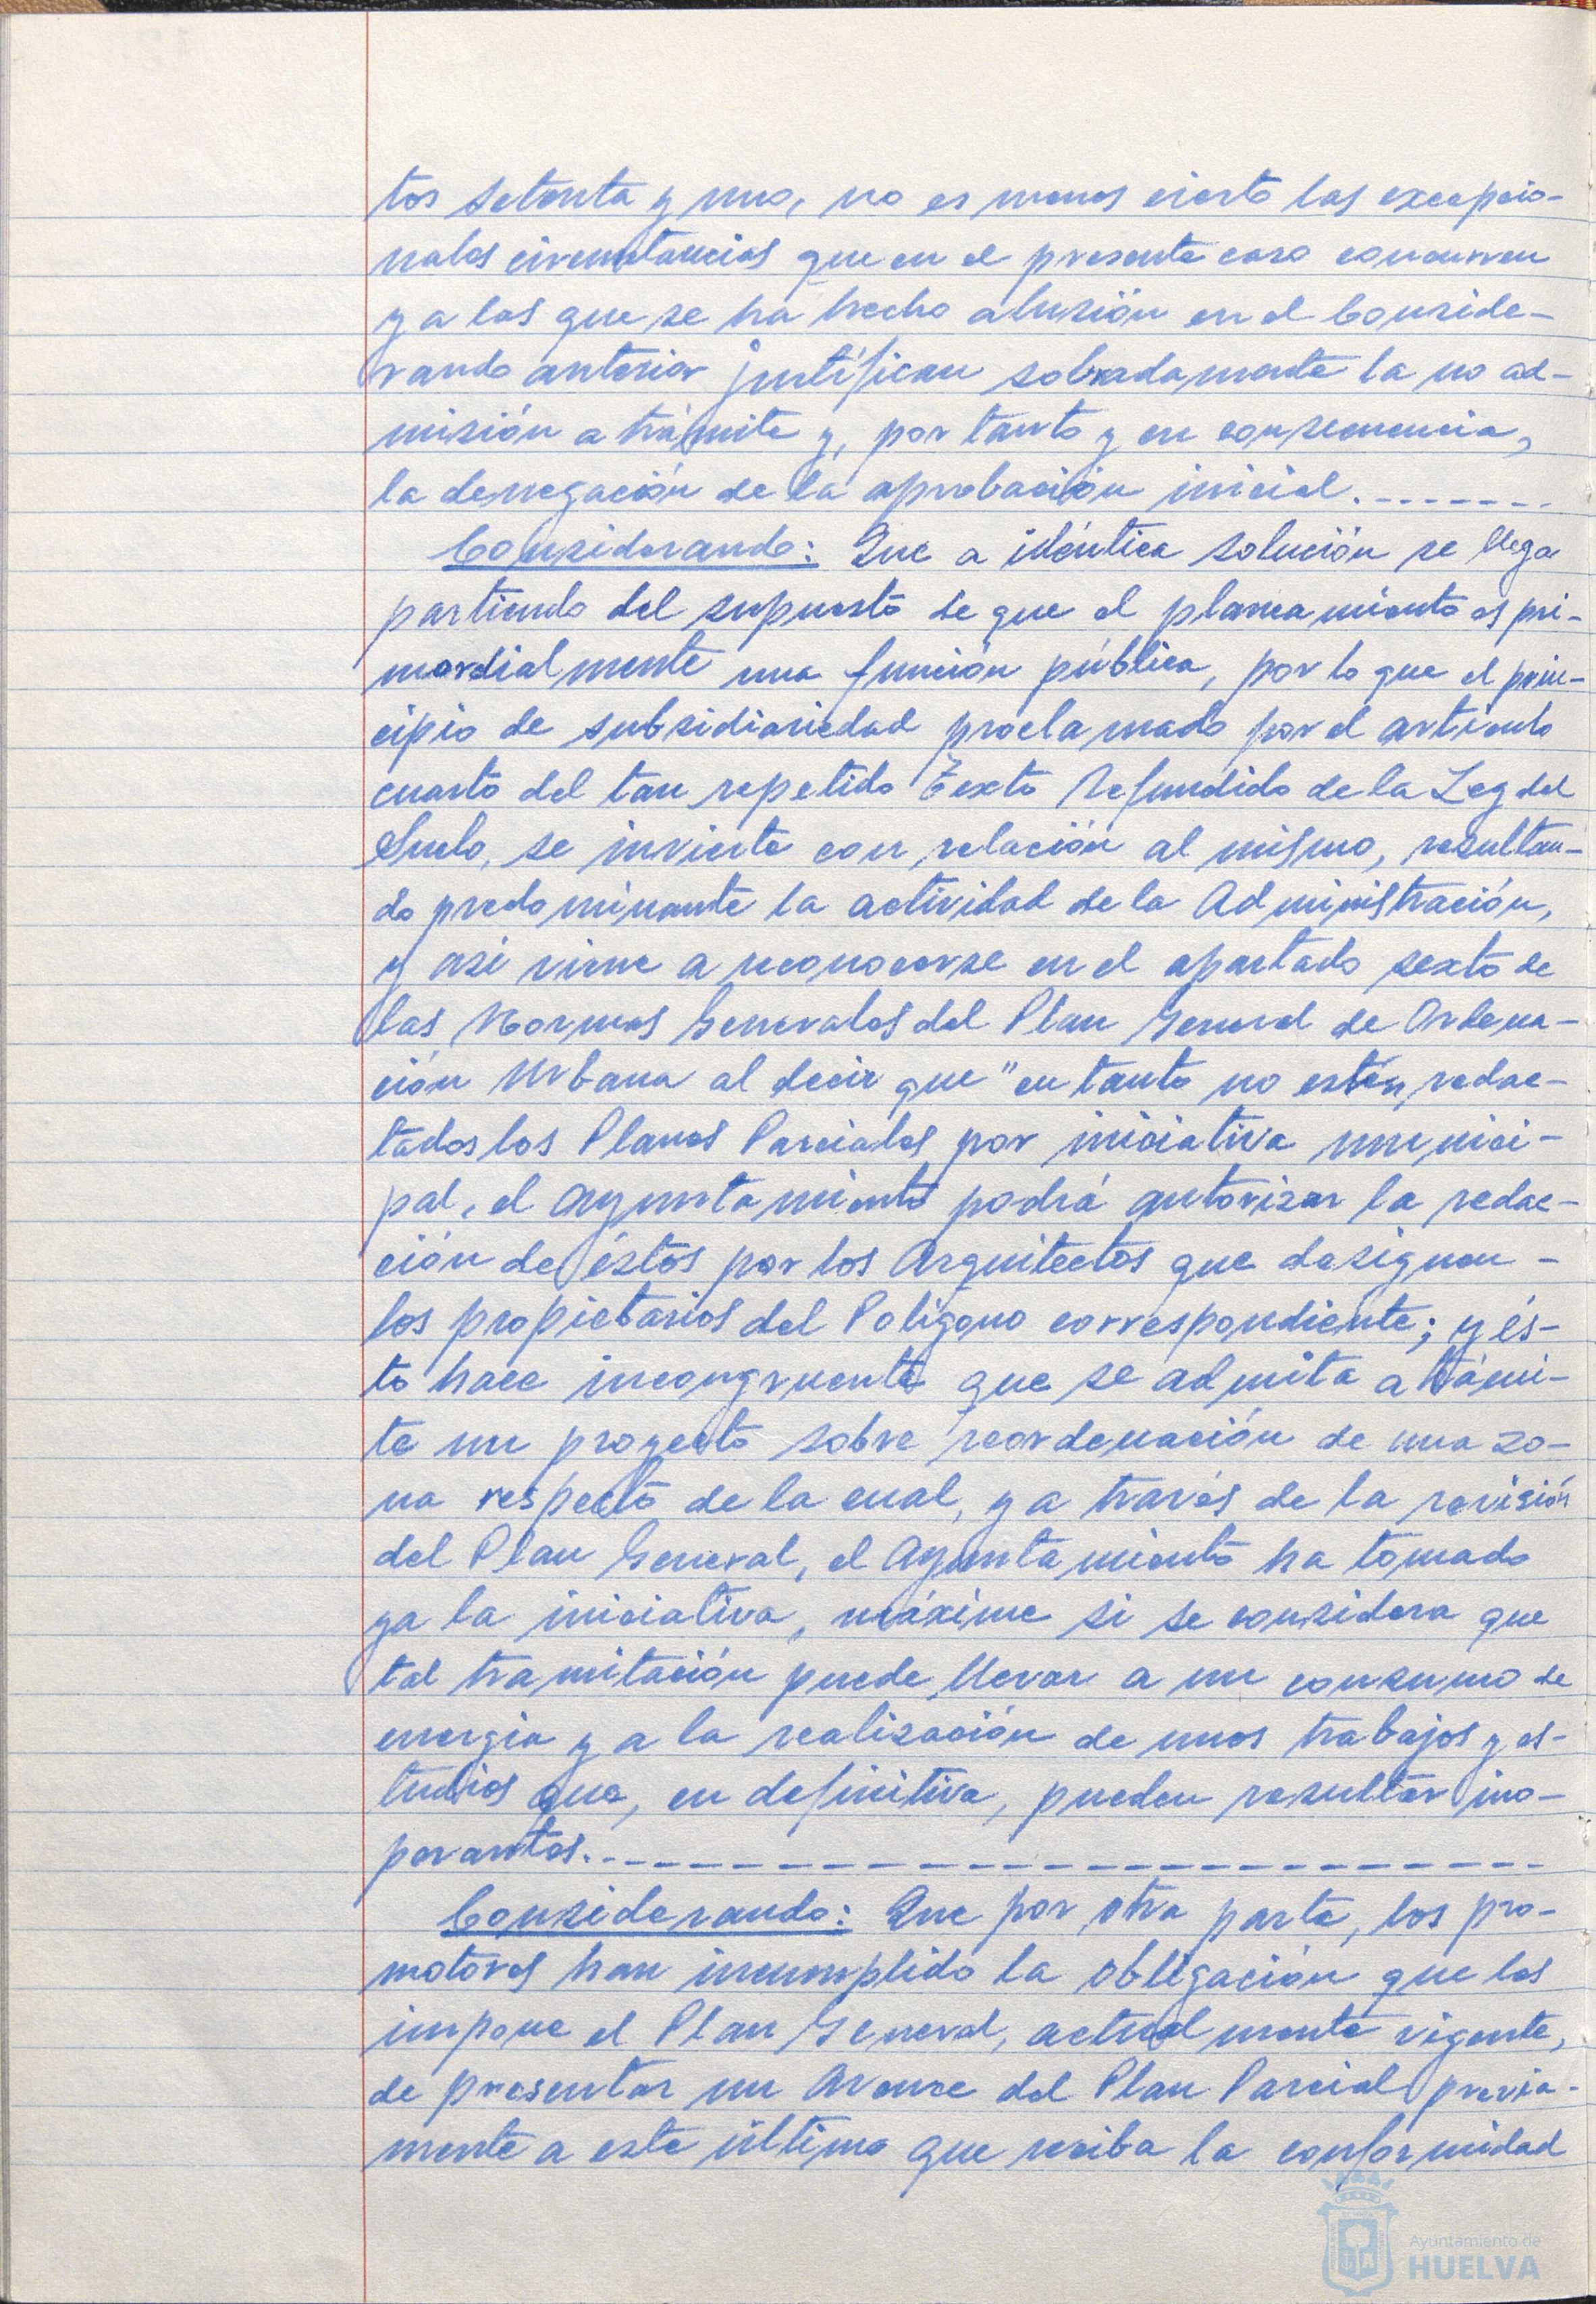 tos setenta y uno, no es menos cierto las excepcio-
nales circunstancias que en el presente caso concurren
y a las que se ha hecho alusión en el Conside-
rando anterior justifican sobradamente la no ad-
misión a trámite y, por tanto y en consecuencia,
la denegación de la aprobación inicial.-------
Considerando: Que a idéntica solución se llega
partiendo del supuesto de que el planeamiento es pri-
mordialmente una función pública, por lo que el prin-
cipio de subsidiariedad proclamado por el artículo
cuarto del tan repetido Texto Refundido de la Ley del
Suelo, se invierte con relación al mismo, resultan-
do predominante la actividad de la Administración,
y así viene a reconocerse en el apartado sexto de
las Normas Generales del Plan General de Ordena-
ción Urbana al decir que "en tanto no estén redac-
tados los Planes Parciales por iniciativa munici-
pal, el Ayuntamiento podrá autorizar la redac-
ción de éstos por los Arquitectos que designen -
los propietarios del Polígono correspondiente; y és-
to hace incongruente que se admita a trámi-
te un proyecto sobre reordenación de una zo-
na respecto de la cual, y a través de la revisión
del Plan General, el Ayuntamiento ha tomado
ya la iniciativa, máxime si se considera que
tal tramitación puede llevar a un consumo de
energia y a la realización de unos trabajos y es-
tudios que, en definitiva, pueden resultar ino-
perantes.---------------------------
Considerando: Que por otra parte, los pro-
motores han incumplido la obligación que les
impone el Plan General, actualmente vigente,
de presentar un Avance del Plan Parcial previa-
mente a este último que reciba la conformidad
Ayuntamiento de
HUELVA